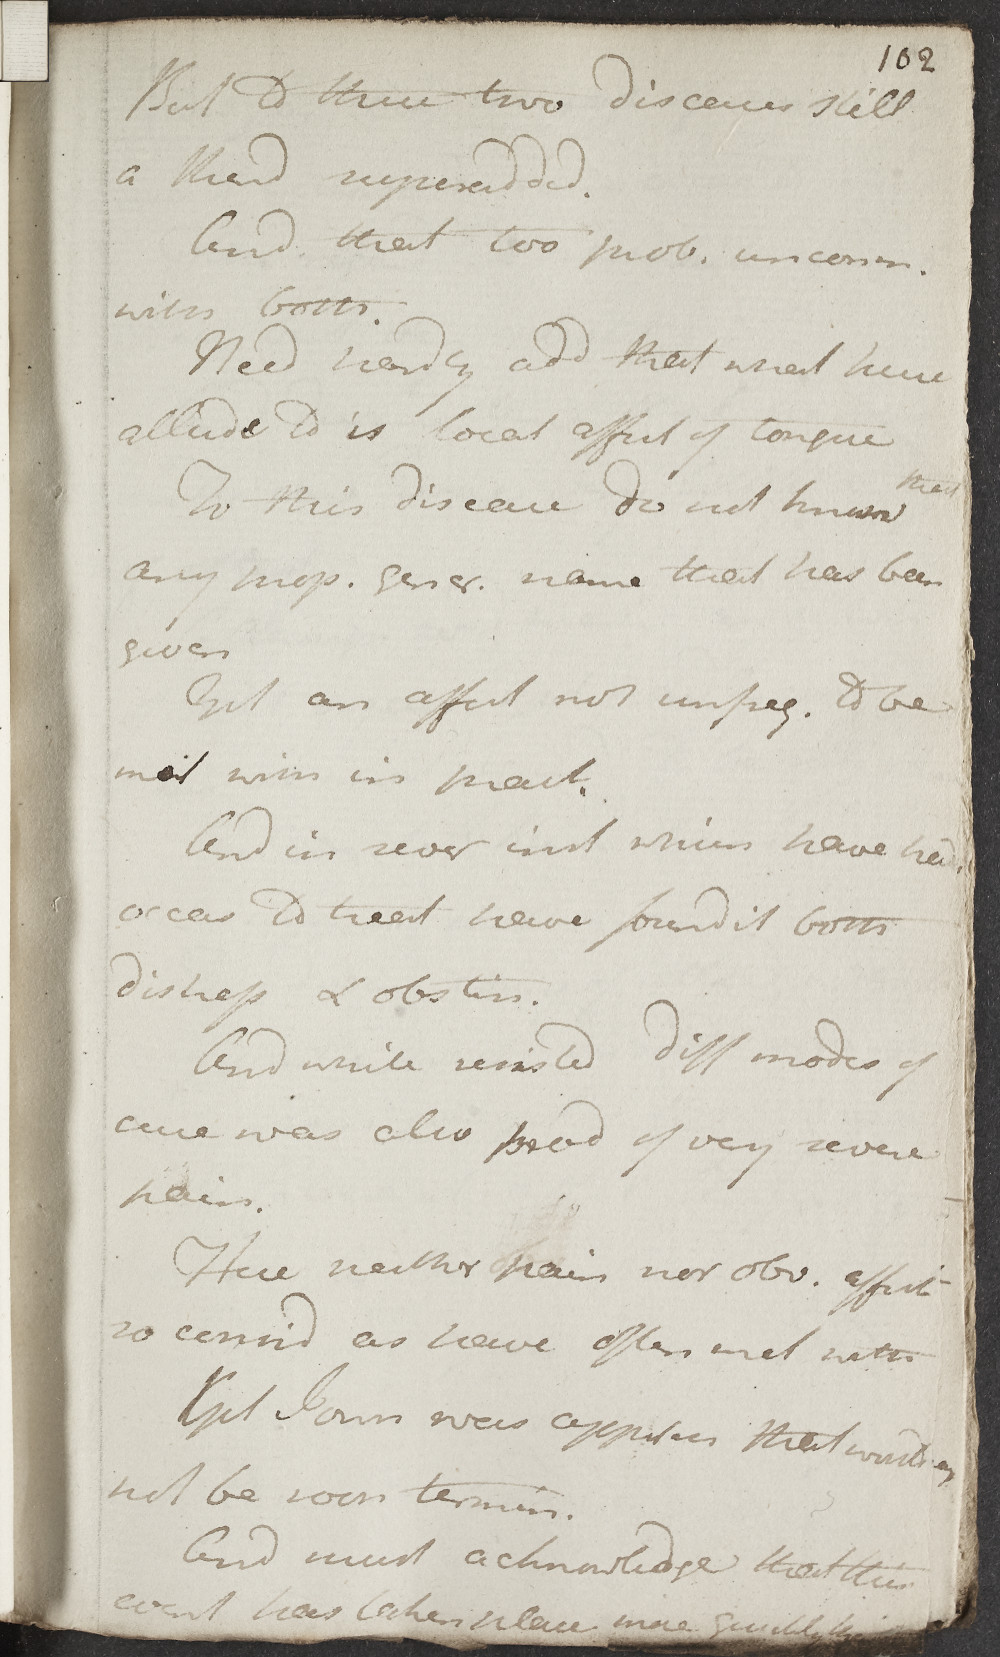 102
But to these two diseases still
a third superadded.
And that too prob. uncomm.
with both.
Need hardly add that what here
allude to is local affect of tongue
To this disease do not know that
any prop. gener. name that has been
given
Yet an affect not unfreq. to be
met with in pract.
And in sever inst which have had
occas to treat have found it both
distress & obstin.
And while resisted diff modes of
cure was also prod of very severe
pain.
Here neither pain nor obv. affect
so consid as have often met with
Yet I own was apprehen that would
not be soon termin.
And must acknowledge that this
event has taken place more quickly